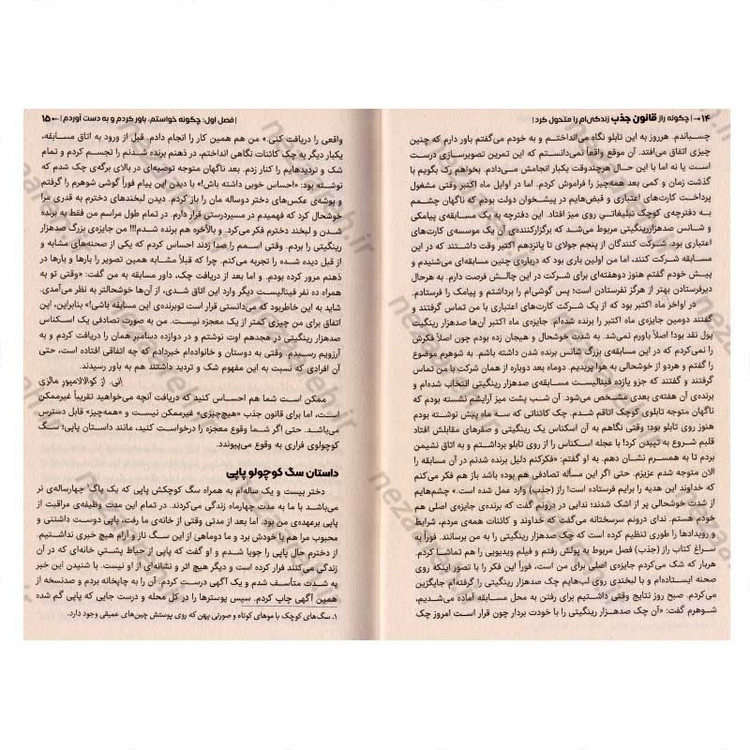 ۱۴ ← | چگونه راز قانون جذب زندگی‌ام را متحول کرد |
چسباندم. هرروز به این تابلو نگاه می‌انداختم و به خودم می‌گفتم باور دارم که چنین
چیزی اتفاق می‌افتد. آن موقع واقعاً نمی‌دانستم که این تمرین تصویرسازی درست
است یا نه اما با این حال هرچندوقت یکبار انجامش می‌دادم. بخواهم رک بگویم با
گذشت زمان و کمی بعد همه‌چیز را فراموش کردم. در اوایل ماه اکتبر وقتی مشغول
پرداخت کارت‌های اعتباری و قبض‌هایم در پیشخوان دولت بودم که ناگهان چشمم
به دفترچه‌ی کوچک تبلیغاتی روی میز افتاد. این دفترچه به یک مسابقه‌ی پیامکی
و شانس صدهزاررینگیتی مربوط می‌شد که برگزارکننده‌ی آن یک موسسه‌ی کارت‌های
اعتباری بود. شرکت کنندگان از پنجم جولای تا پانزدهم اکتبر وقت داشتند که در این
مسابقه شرکت کنند، اما من اولین باری بود که درباره‌ی چنین مسابقه‌ای می‌شنیدم و
پیش خودم گفتم هنوز دوهفته‌ای برای شرکت در این چالش فرصت دارم. به هرحال
دیرفرستادن بهتر از هرگز نفرستادن است؛ پس گوشی‌ام را برداشتم و پیامک را فرستادم.
در اواخر ماه اکتبر بود که از یک شرکت کارت‌های اعتباری با من تماس گرفتند و
گفتند دومین جایزه‌ی ماه اکتبر را برنده شده‌ام. جایزه‌ی ماه اکتبر آن‌ها صدهزار رینگیت
پول نقد بود! اصلاً باورم نمی‌شد. به شدت خوشحال و هیجان زده بودم چون اصلاً فکرش
را نمی‌کردم که در این مسابقه‌ی بزرگ شانس برنده شدن داشته باشم. به شوهرم موضوع
را گفتم و هردو از خوشحالی به هوا پریدیم. دوماه بعد دوباره از همان شرکت با من تماس
گرفتند و گفتند که جزو یازده فینالیست مسابقه‌ی صدهزار رینگیتی انتخاب شده‌ام و
برنده‌ی آن هفته‌ی بعدی مشخص می‌شود. آن شب پشت میز آرایشم نشسته بودم که
ناگهان متوجه تابلوی کوچک اتاقم شدم. چک کائناتی که سه ماه پیش نوشته بودم
هنوز روی تابلو بود؛ وقتی نگاهم به آن اسکناس یک رینگیتی و صفرهای مقابلش افتاد
قلبم شروع به تپیدن کرد! با عجله اسکناس را از روی تابلو برداشتم و به اتاق نشیمن
بردم تا به همسرم نشان دهم. به او گفتم: «فکرکنم دلیل برنده شدنم در آن مسابقه را
الان متوجه شدم عزیزم. حتی اگر این مسأله تصادفی هم بوده باشد باز هم فکر می‌کنم
که خداوند این هدیه را برایم فرستاده است! راز (جذب) وارد عمل شده است.» چشم‌هایم
از شدت خوشحالی پر از اشک شدند؛ ندایی در درونم گفت که برنده‌ی جایزه‌ی اصلی هم
خودم هستم. ندای درونم سرسختانه می‌گفت که خداوند و کائنات همه‌ی مردم، شرایط
و رویدادها را طوری تنظیم کرده است که چک صدهزار رینگیتی را به من برسانند. فوراً به
سراغ کتاب راز (جذب) مربوط به پولش رفتم و فیلم ویدیویی را هم تماشا کردم.
هربار که شک می‌کردم جایزه‌ی اصلی برای من است، فوراً این فکر را با تصور اینکه روی
صحنه ایستاده‌ام و با لبخندی روی لب‌هایم چک صدهزار رینگیتی را گرفته‌ام جایگزین
می‌کردم. صبح روز نتایج وقتی داشتیم برای رفتن به محل مسابقه آماده می‌شدیم،
شوهرم گفت: «آن چک صدهزار رینگیتی را با خودت بردار چون قرار است امروز چک
| فصل اول: چگونه خواستم، باور کردم و به دست آوردم | → ۱۵
واقعی را دریافت کنی.» من هم همین کار را انجام دادم. قبل از ورود به اتاق مسابقه،
یکبار دیگر به چک کائنات نگاهی انداختم، در ذهنم برنده شدنم را تجسم کردم و تمام
شک و تردیدهایم را کنار زدم. بعد ناگهان متوجه توصیه‌ای در بالای برگه‌ی چک شدم که
نوشته بود: «احساس خوبی داشته باش!» با دیدن این پیام فوراً گوشی شوهرم را گرفتم
و پوشه‌ی عکس‌های دختر دوساله مان را باز کردم. دیدن لبخندهای دخترم به قدری مرا
خوشحال کرد که فهمیدم در مسیردرستی قرار دارم. در تمام طول مراسم من فقط به برنده
شدن و لبخند دخترم فکر می‌کردم. و بالأخره هم برنده شدم!!! من جایزه‌ی بزرگ صدهزار
رینگیتی را بردم. وقتی اسمم را صدا زدند احساس کردم که یکی از صحنه‌های مشابه و
از قبل دیده شده را تجربه می‌کنم. چرا که قبلاً مشابه همین تصویر را بارها و بارها در
ذهنم مرور کرده بودم. و اما بعد از دریافت چک، داور مسابقه به من گفت: «وقتی تو به
همراه ده نفر فینالیست دیگر وارد این اتاق شدی، از آن‌ها خوشحالتر به نظر می‌آمدی.
شاید به این خاطربود که می‌دانستی قرار است توبرنده‌ی این مسابقه باشی!» بنابراین، این
اتفاق برای من چیزی کمتر از یک معجزه نیست. من به صورت تصادفی یک اسکناس
صدهزار رینگیتی در هجدهم اوت نوشتم و در دوازده دسامبر همان را دریافت کردم و به
آرزویم رسیدم. وقتی به دوستان و خانواده‌ام خبردادم که چه اتفاقی افتاده است، حتی
آن افرادی که نسبت به این مفهوم شک و تردید داشتند هم به باور رسیدند.
اِنی. از کوالالامپور مالزی
ممکن است شما هم احساس کنید که دریافت آنچه می‌خواهید تقریباً غیرممکن
است، اما برای قانون جذب «هیچ‌چیزی» غیرممکن نیست و «همه‌چیز» قابل دسترس
می‌باشد. حتی اگر شما وقوع معجزه را درخواست کنید، مانند داستان پاپی؛ سگ
کوچولوی فراری به وقوع می‌پیوندد.
داستان سگ کوچولو پاپی
دختر بیست و یک ساله‌ام به همراه سگ کوچکش پاپی که یک پاگ¹ چهارساله‌ی نر
می‌باشد با ما به مدت چهارماه زندگی می‌کردند. در تمام این مدت وظیفه‌ی مراقبت از
پاپی برعهده‌ی من بود. اما بعد از مدتی وقتی از خانه‌ی ما رفت، پاپی دوست داشتنی و
محبوب مرا هم با خودش برد و ما دوماهی از این سگ ناز و آرام هیچ خبری نداشتیم.
از دخترم حال پاپی را جویا شدم و او گفت که پاپی از حیاط پشتیِ خانه‌ای که در آن
زندگی می‌کنند فرار کرده است و دیگر هیچ اثر و نشانه‌ای از او نیست. با شنیدن این خبر
به شدت متأسف شدم و یک آگهی درست کردم. آن را به چاپخانه بردم و صدنسخه از
همین آگهی چاپ کردم. سپس پوسترها را در کل محله و درست جایی که پاپی گم شده
۱. سگ‌های کوچک با موهای کوتاه و صورتی پهن که روی پوستش چین‌های عمیقی وجود دارد.